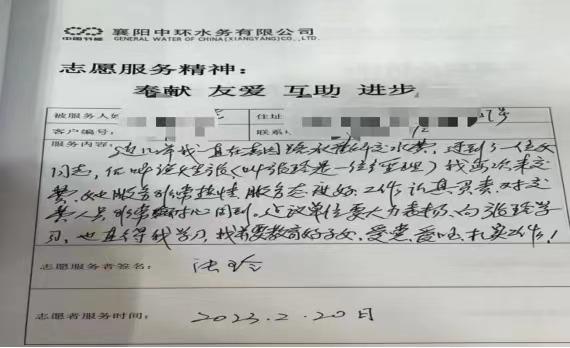 中国节能 襄阳中环水务有限公司
GENERAL WATER OF CHINA(XIANGYANG)CO.,LTD.
志愿服务精神：
奉献 友爱 互助 进步
被服务人姓 住址 号
客户编号： 联系
服务内容：这几年我一直在 水 交水费，遇到了一位女
同志，（叫张玲是一位 经理）我每次来交
费，她服务非常热情，服务态度好，工作认真负责，对交
费人员非常 心周到。建议单位要大力表扬，向张玲学
习，也值得我学习，我要教育好子女，爱党，爱国，扎实工作！
志愿服务者签名： 张玲
志愿者服务时间： 2023.2.20日